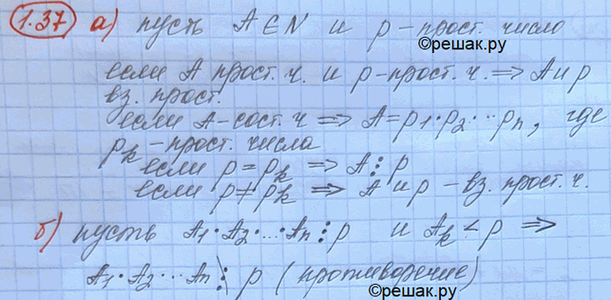 1.37 а) пусть A ∈ N и p – прост. число
©решак.ру
если A прост. ч. и p – прост. ч. ⇒ A и p
вз. прост.
если A – сост. ч ⇒ A = p₁·p₂·...pₙ, где
pₖ – прост. числа
если p = pₖ ⇒ A ⋮ p
если p ≠ pₖ ⇒ A и p – вз. прост. ч.
б) пусть A₁·A₂·...·Aₙ ⋮ p и Aₖ < p ⇒
A₁·A₂·...Aₙ ⋮̸ p (противоречие)
©решак.ру